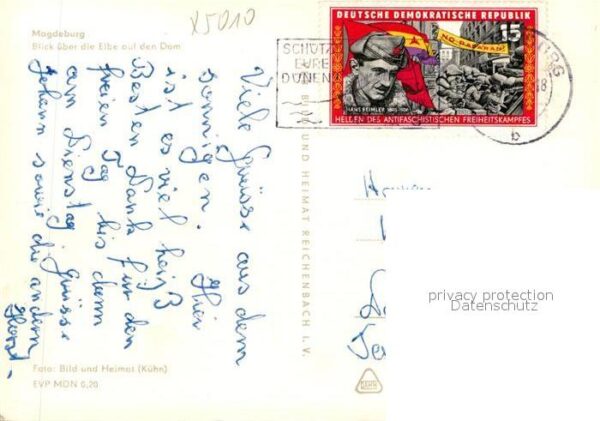 X5010
Magdeburg
Blick über die Elbe auf den Dom
Viele Grüsse aus dem
sonnigen. Hier
ist es viel heiß
Besten Dank für den
freien Tag bis dann
am Dienstag, Grüsse
Johann sowie die andern
Horst.
Foto: Bild und Heimat (Kühn)
EVP MDN 0,20
BILD UND HEIMAT REICHENBACH I. V.
DEUTSCHE DEMOKRATISCHE REPUBLIK
15
NO PASARAN!
HANS BEIMLER
HELDEN DES ANTIFASCHISTISCHEN FREIHEITSKAMPFES
SCHÜTZT
EURE
DÜNEN
b
privacy protection
Datenschutz